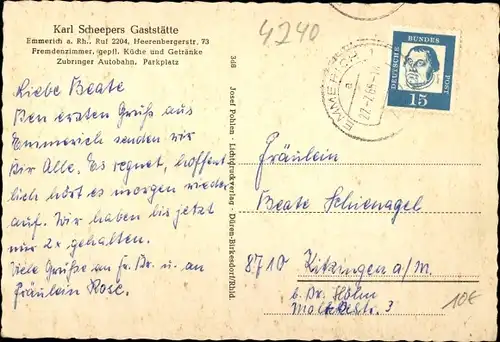 4240
Karl Scheepers Gaststätte
Emmerich a. Rh., Ruf 2204, Heerenbergerstr. 73
Fremdenzimmer, gepfl. Küche und Getränke
Zubringer Autobahn, Parkplatz
Liebe Beate
Den ersten Gruß aus
Emmerich senden wir
Dir Alle. Es regnet, hoffent
lich hört es morgen wieder
auf. Wir haben bis jetzt
nur 2x gehalten.
Viele Grüße an Fr. Br. u. an
Fräulein Rose.
368
Josef Pohlen - Lichtdruckverlag - Düren-Birkesdorf/Rhld.
EMMERICH
a
DEUTSCHE BUNDES POST
15
Fräulein
Beate Schienagel
8710 Kitzingen a/m.
b. Dr. Höhn
Moltkestr. 3
10€